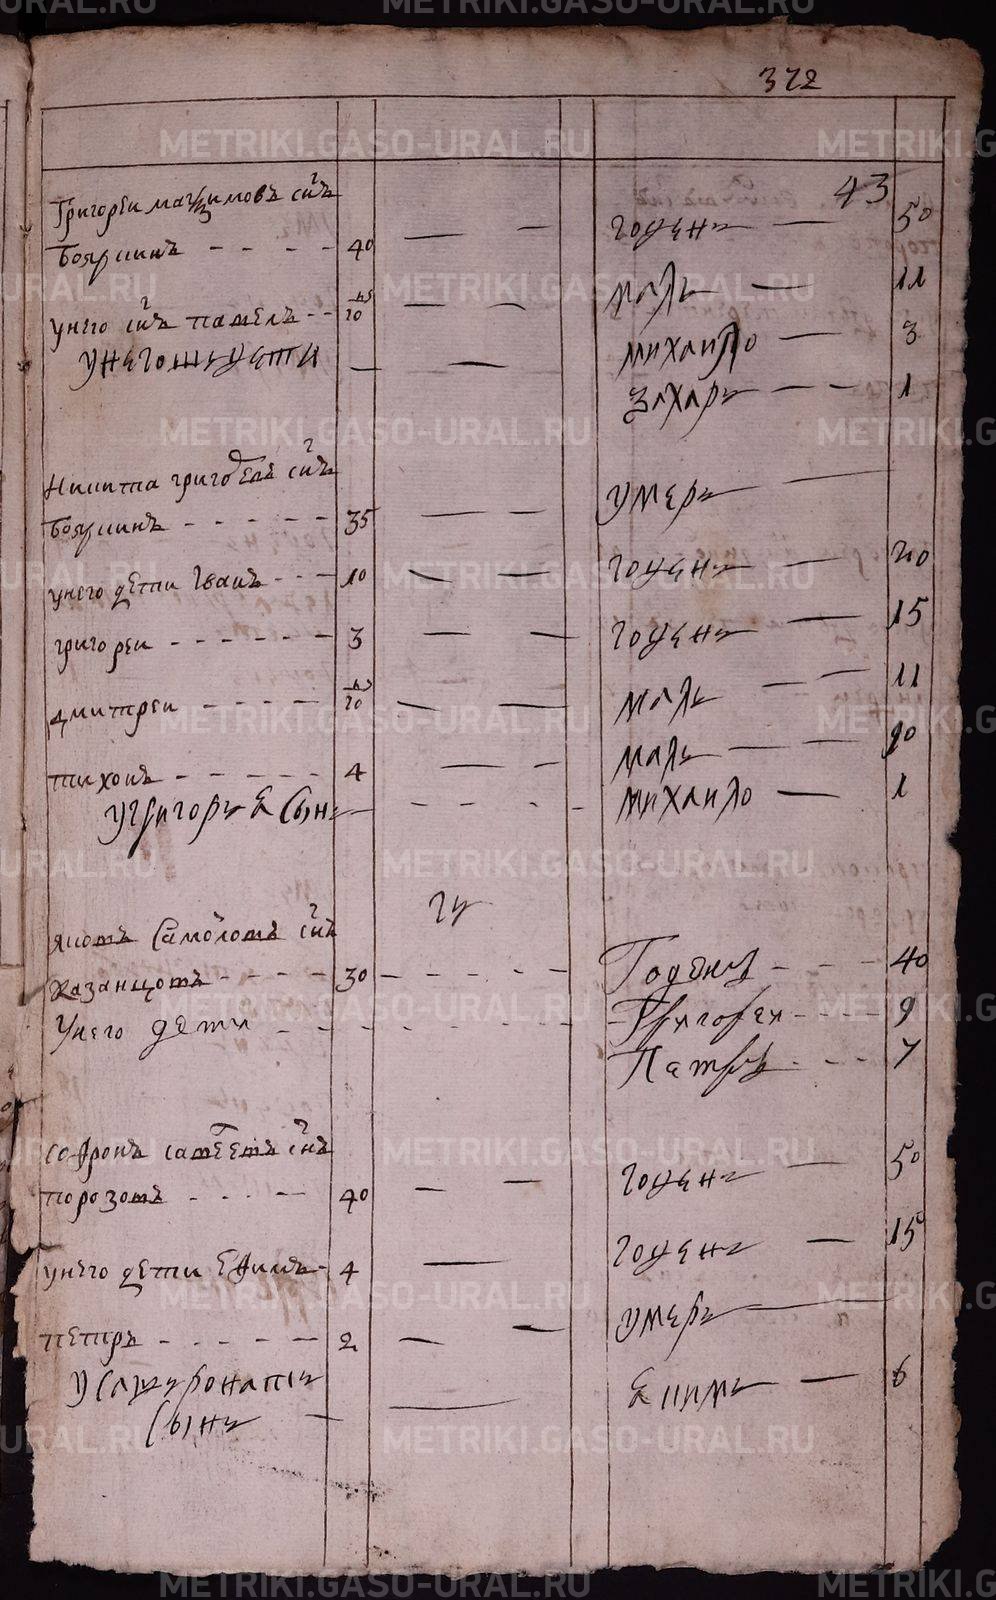 372
43
Григореи маѯимовъ снъ
бояршинъ - - - - 40 — — годенъ — 50
у него снъ павелъ - - 20 — — малъ — 11
У него ж дети — — михаило — 3
захаръ — — 1
Никита григоревъ снъ
бояршинъ - - - - - 35 — — умеръ —
у него дети Iванъ - - - 10 — — годенъ — 20
григореи - - - - - - 3 — — годенъ — 15
дмитреи - - - - - — — малъ — — 11
тихонъ - - - - - 4 — — малъ — — 10
У григоръя сынъ - - - - михаило — 1
гу
яковъ Самоловъ снъ
казанцовъ - - - - 30 - - - - - Годенъ - - - - 40
У него дети - - - - - - - Григореи - - - - 9
Петръ - - - - 7
софронъ саввеевъ снъ
порозовъ - - - - 40 — — годенъ — 50
у него дети Ефимъ - 4 — годенъ — 15
петръ - - - - - 2 — — умеръ —
У
сынъ — — екимъ — 6
METRIKI.GASO-URAL.RU